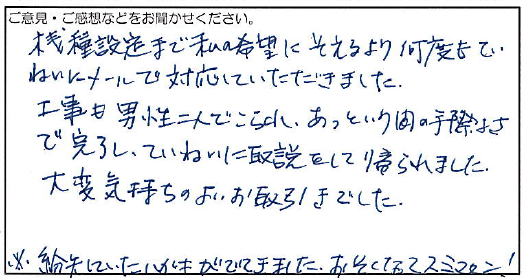 ご意見・ご感想などをお聞かせください。
機種設定まで私の希望にそえるよう何度もてい
ねいにメールで対応していただきました。
工事も男性二人でこられ、あっという間の手際よさ
で完了し、ていねいに取説をして帰られました。
大変気持ちのよいお取引きでした。
※紛失していたハガキがでてきました。おそくなってスミマセン!